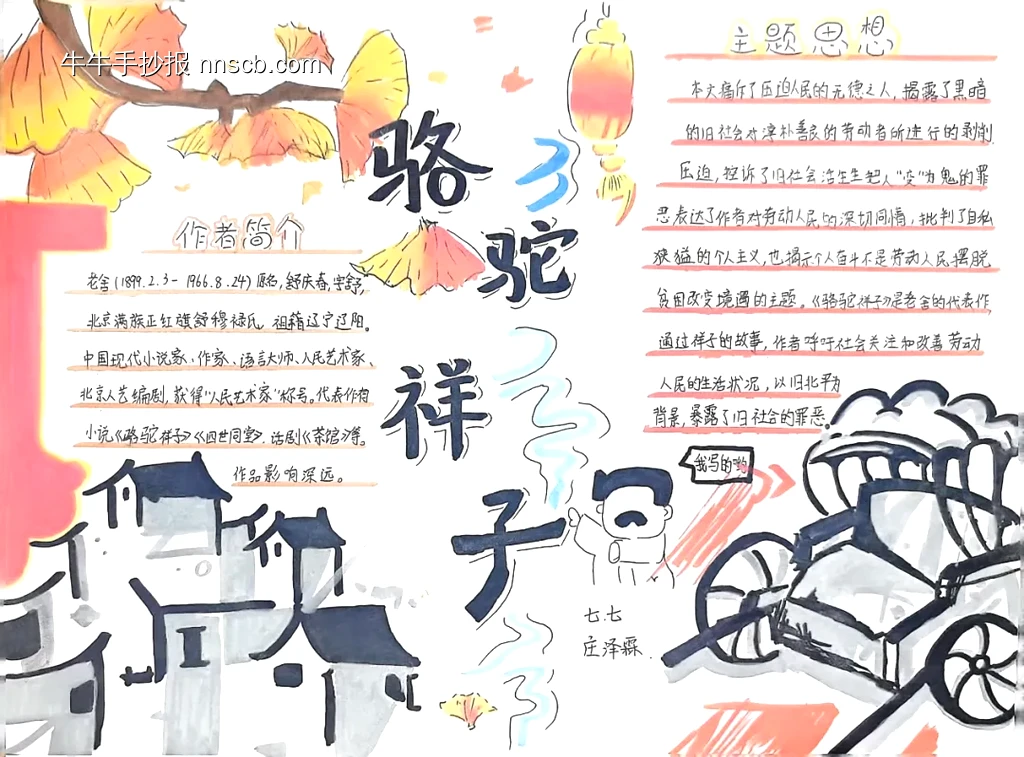 牛牛手抄报 nnscb.com
骆驼祥子
作者简介
老舍(1899.2.3-1966.8.24)原名,舒庆春,字舍予,
北京满族正红旗舒穆禄氏,祖籍辽宁辽阳。
中国现代小说家、作家、语言大师、人民艺术家、
北京人艺编剧,获得"人民艺术家"称号。代表作有
小说《骆驼祥子》《四世同堂》,话剧《茶馆》等。
作品影响深远。
主题思想
本文痛斥了压迫人民的无德之人,揭露了黑暗
的旧社会对淳朴善良的劳动者所进行的剥削
压迫,控诉了旧社会活生生把人"变"为鬼的罪
恶表达了作者对劳动人民的深切同情,批判了自私
狭隘的个人主义,也揭示个人奋斗不是劳动人民摆脱
贫困改变境遇的主题。《骆驼祥子》是老舍的代表作,
通过祥子的故事,作者呼吁社会关注和改善劳动
人民的生活状况,以旧北平为
背景,暴露了旧社会的罪恶。
我写的哟
七.七
庄泽霖.